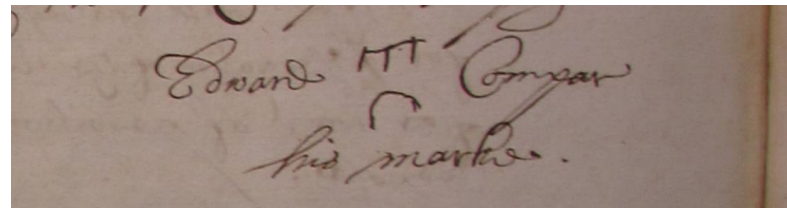 Edward Compar
his marke.